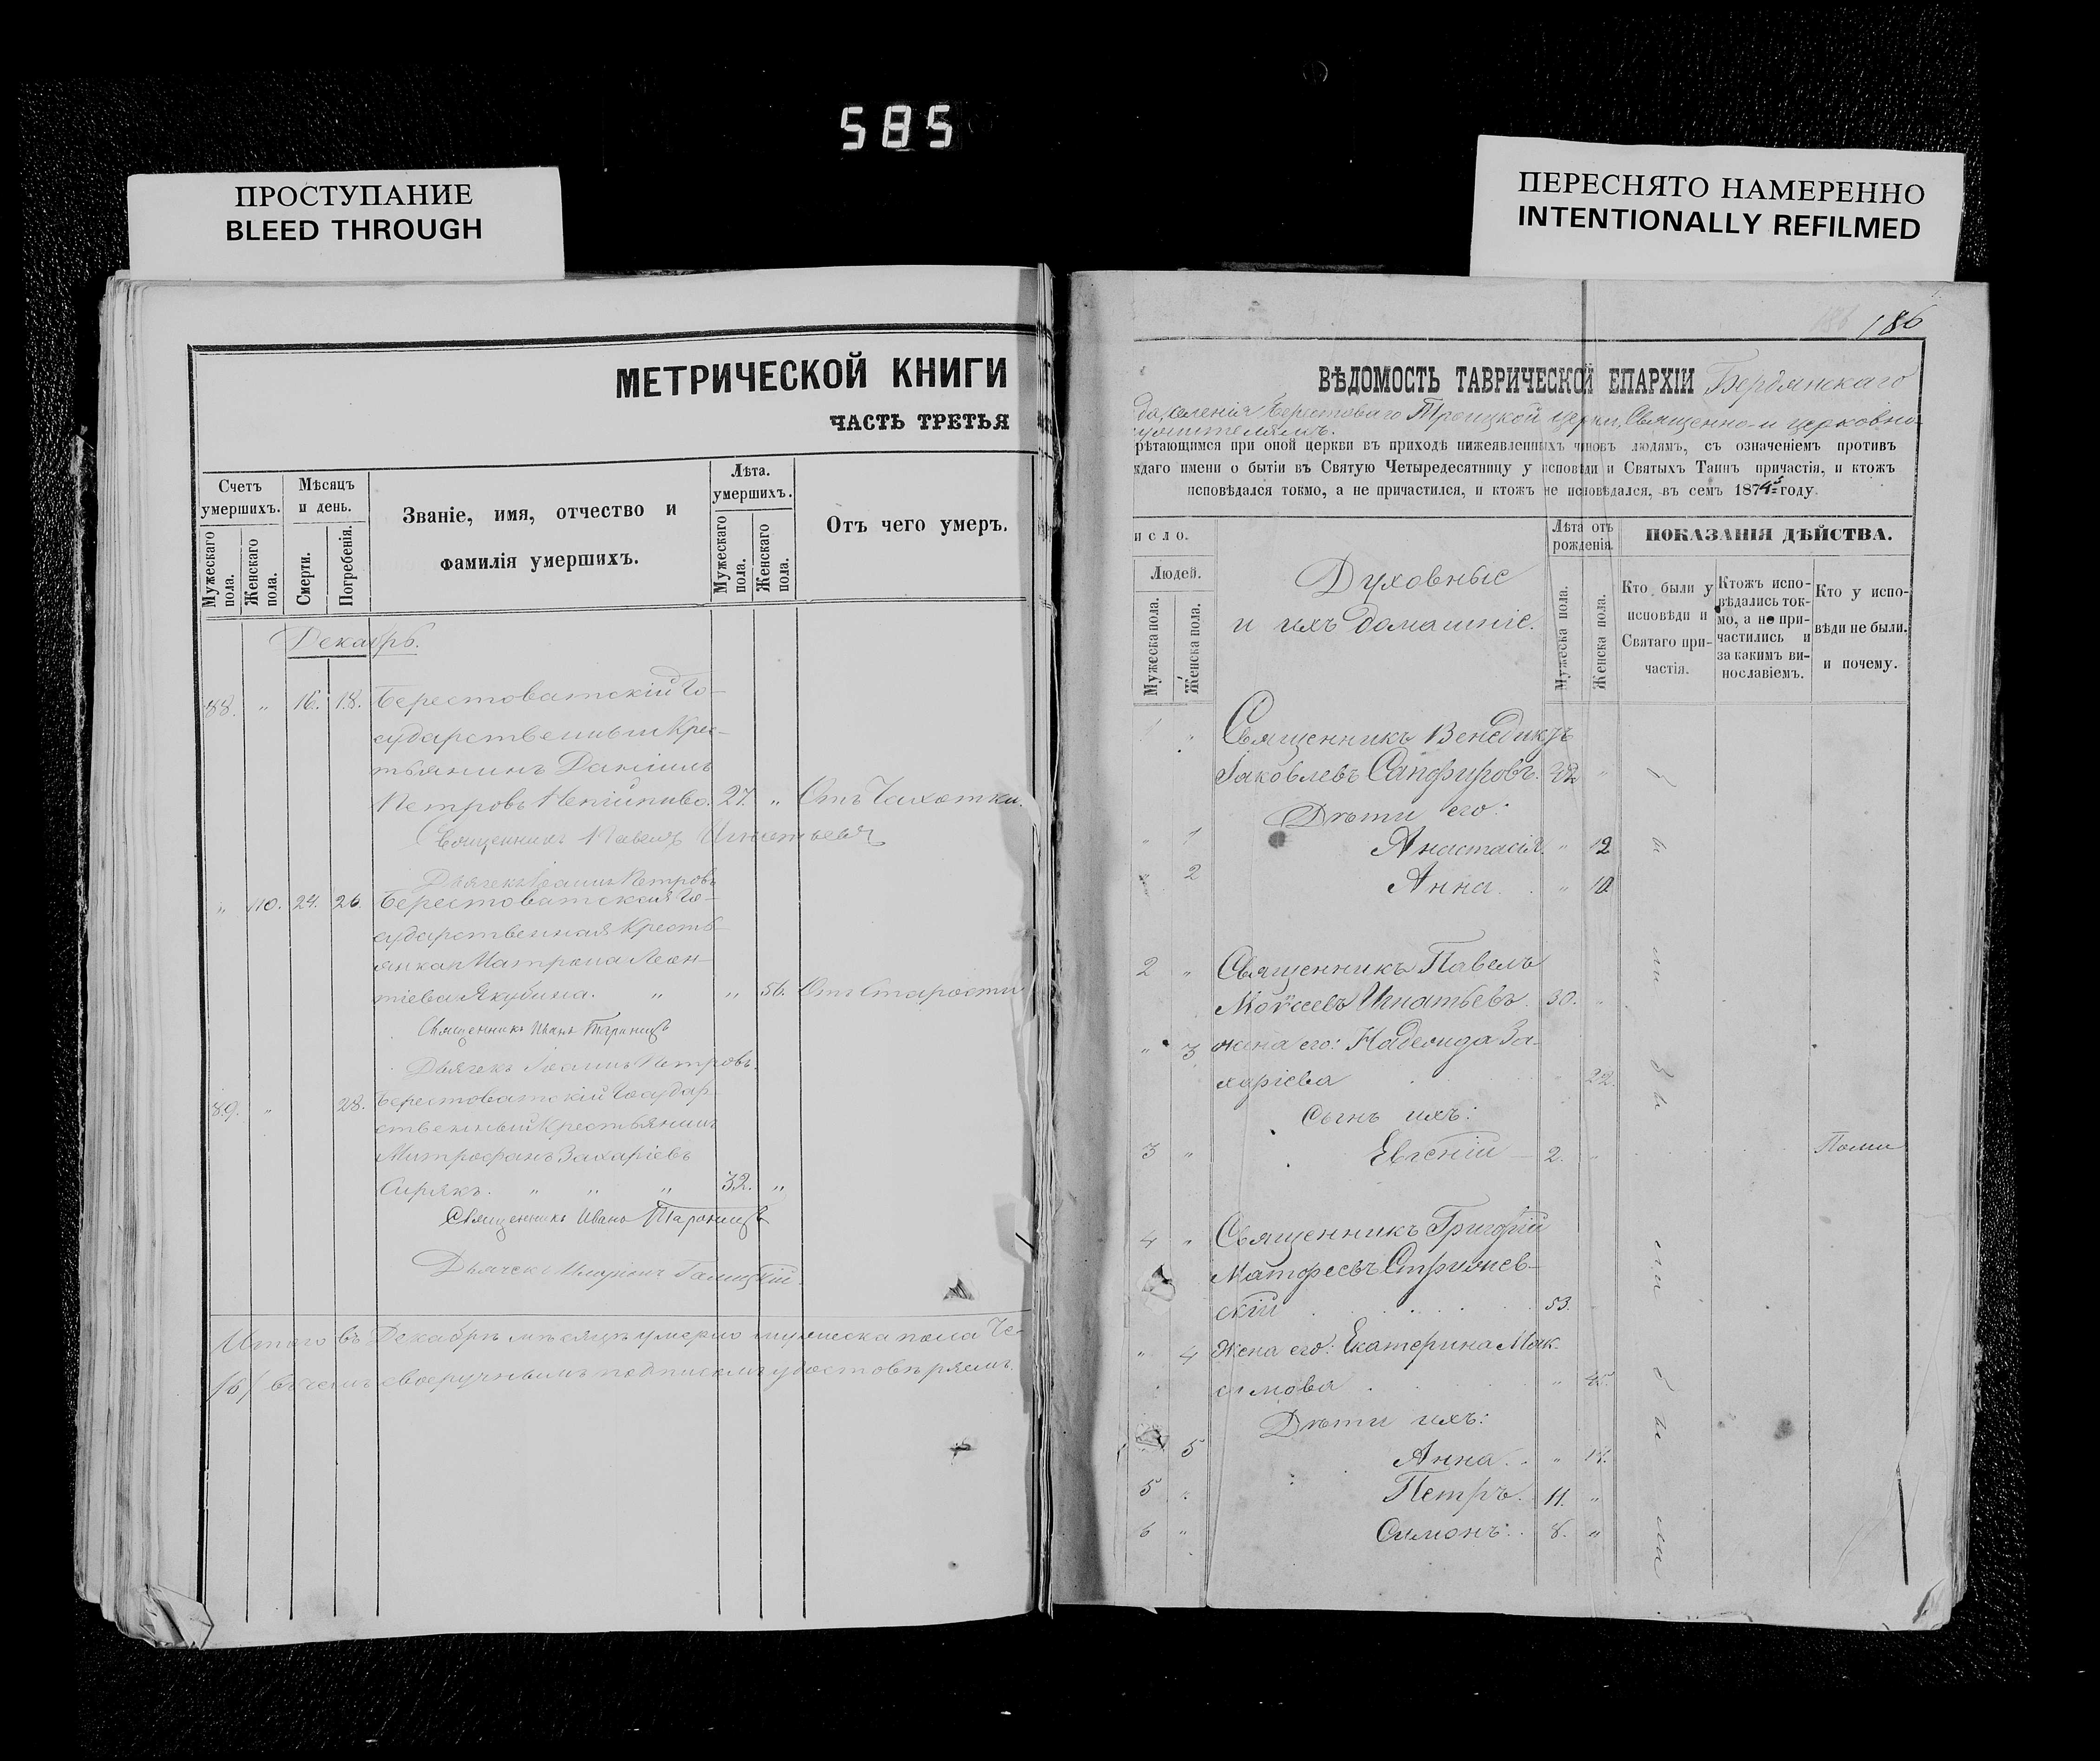 585
ПРОСТУПАНИЕ
BLEED THROUGH
ПЕРЕСНЯТО НАМЕРЕННО
INTENTIONALLY REFILMED
МЕТРИЧЕСКОЙ КНИГИ
ЧАСТЬ ТРЕТЬЯ
Счетъ умершихъ.
Мѣсяцъ и день.
Званіе, имя, отчество и
фамилія умершихъ.
Лѣта. умершихъ.
Отъ чего умеръ.
Мужескаго пола.
Женскаго пола.
Смерти.
Погребенія.
Мужескаго пола.
Женскаго пола.
Декабрь.
88. " 16. 18. Берестоватскій Го-
сударственный Крес-
тьянинъ Даніилъ
Петровъ 27. " Отъ Чахотки.
Священникъ Павелъ Игнатьевъ
Дьячекъ Іоаннъ Петровъ
" 110. 24. 26. Берестоватская Го-
сударственная Кресть-
янка Матрона Леон-
тіева Якубина. " " 56. Отъ Старости
Священникъ Иванъ
Дьячекъ Іоаннъ Петровъ.
89. " 28. Берестоватскій Государ-
ственный Крестьянинъ
Митрофанъ Захаріевъ
Сирякъ. " " " 32. "
Священникъ Иванъ
Дьячекъ
Итого въ Декабрѣ мѣсяцѣ умерло мужеска пола
въ чемъ своеручнымъ подписомъ удостовѣряемъ.
186
ВѢДОМОСТЬ ТАВРИЧЕСКОЙ ЕПАРХІИ Бердянскаго
Берестоваго Троицкой церкви, Священно и церковно-
рѣтающимся при оной церкви въ приходѣ нижеявленныхъ чиновъ людямъ, съ означеніемъ противъ
ждаго имени о бытіи въ Святую Четыредесятницу у исповѣди и Святыхъ Таинъ причастія, и ктожъ
исповѣдался токмо, а не причастился, и ктожъ не исповѣдался, въ семъ 187 году.
исло.
Людей.
Мужеска пола.
Женска пола.
Духовные
и ихъ домашніе.
Лѣта отъ рожденія.
Мужеска пола.
Женска пола.
ПОКАЗАНІЯ ДѢЙСТВА.
Кто были у исповѣди и Святаго причастія.
Ктожъ исповѣдались токмо, а не причастились и за какимъ винославіемъ.
Кто у исповѣди не были. и почему.
1 " Священникъ Венедиктъ
Іаковлевъ Сапфировъ. "
Дѣти его:
" 1 Анастасія. " 12
" 2 Анна. " 10
2 " Священникъ Павелъ
Моѵсеевъ Игнатьевъ. 30. "
" 3 жена его: Надежда За-
харіева 22.
Сынъ ихъ:
3 " Евгеній 2. "
4 " Священникъ Григорій
Матфеевъ Стрижев-
скій 53.
" 4 Жена его: Екатерина Мак-
симова " 45.
Дѣти ихъ:
5 Анна. "
5 " Петръ. 11. "
6 " Симонъ. 8. "